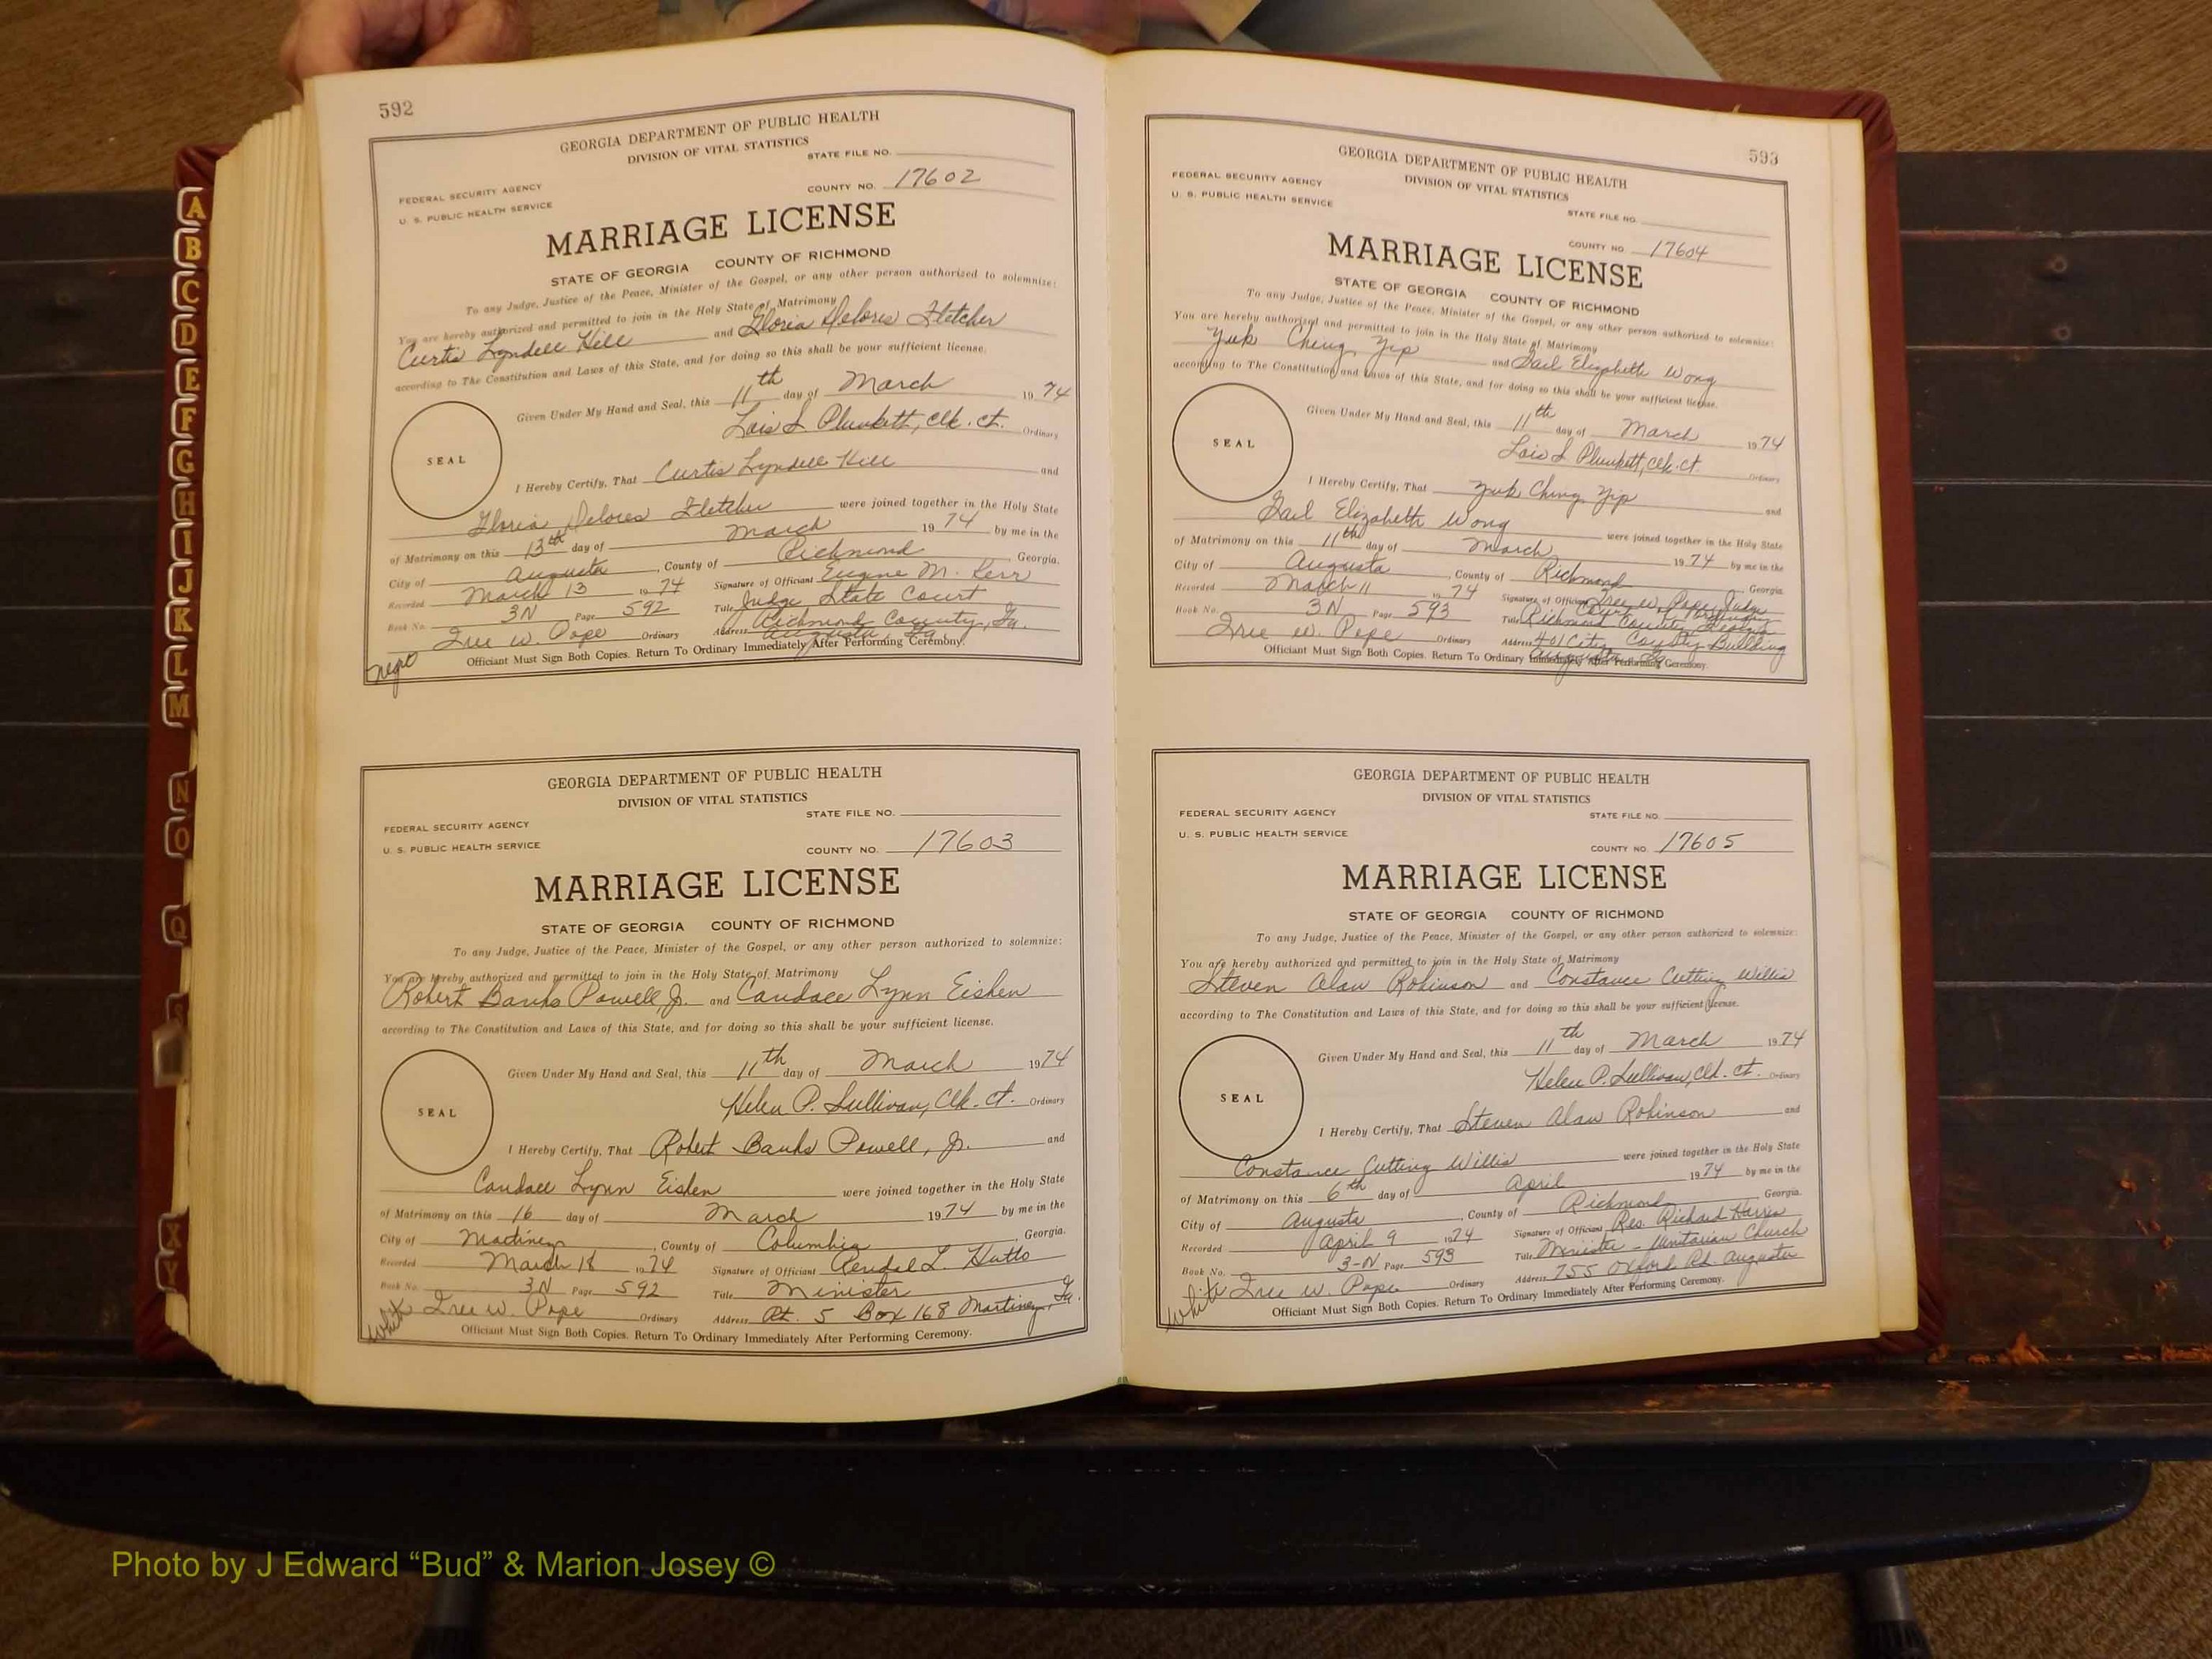 592
GEORGIA DEPARTMENT OF PUBLIC HEALTH
DIVISION OF VITAL STATISTICS
STATE FILE NO.
FEDERAL SECURITY AGENCY
U. S. PUBLIC HEALTH SERVICE
COUNTY NO. 17602
MARRIAGE LICENSE
STATE OF GEORGIA COUNTY OF RICHMOND
To any Judge, Justice of the Peace, Minister of the Gospel, or any other person authorized to solemnize:
You are hereby authorized and permitted to join in the Holy State of Matrimony
Curtis Lyndell Hill and Gloria Delores Fletcher
according to The Constitution and Laws of this State, and for doing so this shall be your sufficient license.
Given Under My Hand and Seal, this 11th day of March 1974
Lois S. Plunkett, Clk. Ct. Ordinary
SEAL
I Hereby Certify, That Curtis Lyndell Hill and
Gloria Delores Fletcher were joined together in the Holy State
of Matrimony on this 13th day of March 1974 by me in the
City of Augusta, County of Richmond, Georgia.
Recorded March 13 1974 Signature of Officiant Eugene M. Kerr
Book No. 3N Page 592 Title Judge State Court
Richmond County, Ga.
Iree W. Pope Ordinary Address Augusta Ga
Officiant Must Sign Both Copies. Return To Ordinary Immediately After Performing Ceremony.
Negro
GEORGIA DEPARTMENT OF PUBLIC HEALTH
DIVISION OF VITAL STATISTICS
STATE FILE NO.
FEDERAL SECURITY AGENCY
U. S. PUBLIC HEALTH SERVICE
COUNTY NO. 17603
MARRIAGE LICENSE
STATE OF GEORGIA COUNTY OF RICHMOND
To any Judge, Justice of the Peace, Minister of the Gospel, or any other person authorized to solemnize:
You are hereby authorized and permitted to join in the Holy State of Matrimony
Robert Banks Powell, Jr. and Candace Lynn Eishen
according to The Constitution and Laws of this State, and for doing so this shall be your sufficient license.
Given Under My Hand and Seal, this 11th day of March 1974
Helen P. Sullivan, Clk. Ct. Ordinary
SEAL
I Hereby Certify, That Robert Banks Powell, Jr. and
Candace Lynn Eishen were joined together in the Holy State
of Matrimony on this 16 day of March 1974 by me in the
City of Martinez, County of Columbia, Georgia.
Recorded March 18 1974 Signature of Officiant Rendal L. Hutto
Book No. 3N Page 592 Title Minister
White Iree W. Pope Ordinary Address Rt. 5 Box 168 Martinez, Ga.
Officiant Must Sign Both Copies. Return To Ordinary Immediately After Performing Ceremony.
593
GEORGIA DEPARTMENT OF PUBLIC HEALTH
DIVISION OF VITAL STATISTICS
FEDERAL SECURITY AGENCY
U. S. PUBLIC HEALTH SERVICE
STATE FILE NO.
COUNTY NO. 17604
MARRIAGE LICENSE
STATE OF GEORGIA COUNTY OF RICHMOND
To any Judge, Justice of the Peace, Minister of the Gospel, or any other person authorized to solemnize:
You are hereby authorized and permitted to join in the Holy State of Matrimony
Yuk Ching Yip and Gail Elizabeth Wong
according to The Constitution and Laws of this State, and for doing so this shall be your sufficient license.
Given Under My Hand and Seal, this 11th day of March 1974
Lois S. Plunkett, Clk. Ct. Ordinary
SEAL
I Hereby Certify, That Yuk Ching Yip and
Gail Elizabeth Wong were joined together in the Holy State
of Matrimony on this 11th day of March 1974 by me in the
City of Augusta, County of Richmond Georgia
Recorded March 11 1974 Signature of Officiant Iree W. Pope, Judge
Court of Ordinary
Book No. 3N Page 593 Title Richmond County Georgia
Iree W. Pope Ordinary Address 401 City County Building
Augusta Ga
Officiant Must Sign Both Copies. Return To Ordinary Immediately After Performing Ceremony.
GEORGIA DEPARTMENT OF PUBLIC HEALTH
DIVISION OF VITAL STATISTICS
FEDERAL SECURITY AGENCY
STATE FILE NO.
U. S. PUBLIC HEALTH SERVICE
COUNTY NO. 17605
MARRIAGE LICENSE
STATE OF GEORGIA COUNTY OF RICHMOND
To any Judge, Justice of the Peace, Minister of the Gospel, or any other person authorized to solemnize:
You are hereby authorized and permitted to join in the Holy State of Matrimony
Steven Alan Robinson and Constance Cutting Willis
according to The Constitution and Laws of this State, and for doing so this shall be your sufficient license.
Given Under My Hand and Seal, this 11th day of March 1974
Helen P. Sullivan, Clk. Ct. Ordinary
SEAL
I Hereby Certify, That Steven Alan Robinson and
Constance Cutting Willis were joined together in the Holy State
of Matrimony on this 6th day of April 1974 by me in the
City of Augusta, County of Richmond Georgia.
Recorded April 9 1974 Signature of Officiant Rev. Richard Harris
Book No. 3-N Page 593 Title Minister - Unitarian Church
White Iree W. Pope Ordinary Address 755 Oxford Rd. Augusta
Officiant Must Sign Both Copies. Return To Ordinary Immediately After Performing Ceremony.
A
B
C
D
E
F
G
H
I
J
K
L
M
N
O
Q
S
X
Y
Photo by J Edward “Bud” & Marion Josey ©